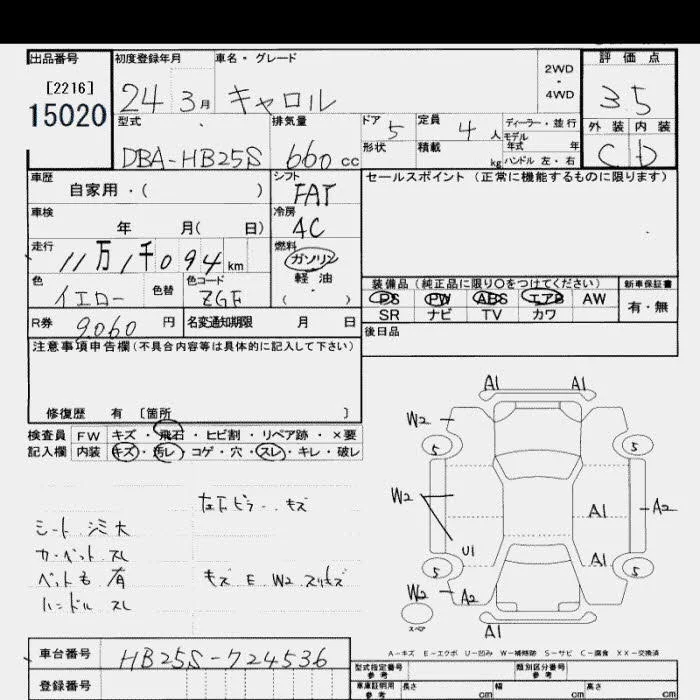 出品番号 初度登録年月 車名・グレード 2WD・4WD 評価点
[2216]
15020
24 3月 キャロル 3.5
型式 排気量 ドア 定員 ディーラー・並行 外装 内装
モデル
年式 年
DBA-HB25S 660 cc 5 4 人 C D
形状 積載 kg ハンドル 左・右
車歴 シフト セールスポイント (正常に機能するものに限ります)
自家用・( ) FAT
車検 冷房
年 月( 日) AC
走行 燃料
11万1千094 km ガソリン
軽油
( )
色 色替 色コード 装備品 (純正品に限り○をつけてください) 新車保証書
イエロー ZGF PS PW ABS エアB AW 有・無
SR ナビ TV カワ
R券 9,060 円 名変通知期限 月 日 後日品
注意事項申告欄 (不具合内容等は具体的に記入して下さい)
修復歴 有 〔箇所 〕
検査員 FW キズ・飛石・ヒビ割・リペア跡・×要
記入欄 内装 キズ・汚レ・コゲ・穴・スレ・キレ・破レ
A1 A1
W2
5 5
W2 A1 A2
U1 A1
5 5
W2 A2
スペア
A1
左下ピラー キズ
シート シミ大
カーペット スレ
ペット毛 有 キズ E W2
ハンドル スレ
A-キズ E-エクボ U-凹み W-補修跡 S-サビ C-腐食 XX-交換済
車台番号 HB25S-724536
型式指定番号 参考 類別区分番号 参考
登録番号
車庫証明用 参考 長さ cm 幅 cm 高さ cm